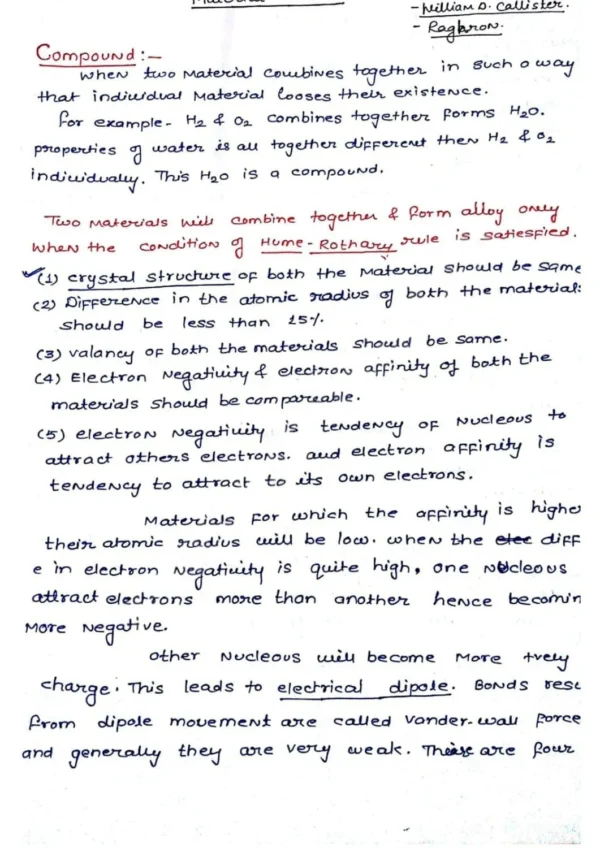 - William D. Callister.
- Raghron.
Compound :-
When two Material Combines together in such a way
that individual Material looses their existence.
for example - H2 & O2 combines together forms H2O.
properties of water is all together different then H2 & O2
individually. This H2O is a compound.
Two Materials will combine together & form alloy only
when the condition of Hume - Rothary rule is satiesfied.
(1) crystal structure of both the Material should be same
(2) Difference in the atomic radius of both the materials
should be less than 15%.
(3) valancy of both the materials should be same.
(4) Electron Negativity & electron affinity of both the
materials should be compareable.
(5) electron Negativity is tendency of Nucleous to
attract others electrons. and electron affinity is
tendency to attract to its own electrons.
Materials for which the affinity is highe
their atomic radius will be low. when the elec diff
e in electron Negativity is quite high, one Nucleous
attract electrons more than another hence becomin
More Negative.
other Nucleous will become More +vely
charge. This leads to electrical dipole. Bonds resu
from dipole movement are called Vander-wall force
and generally they are very weak. These are four